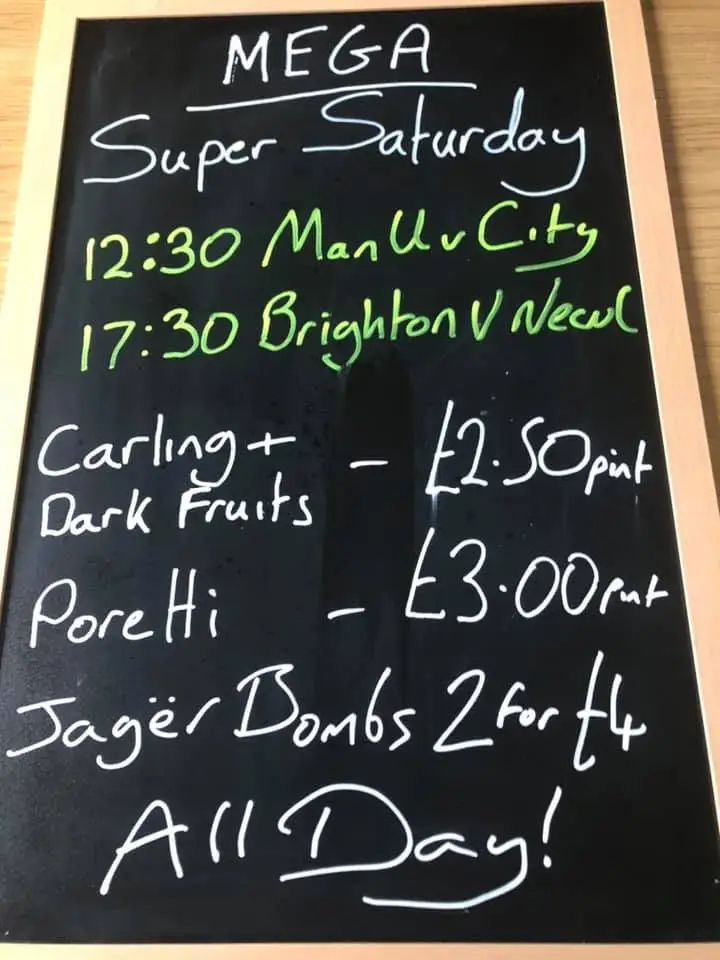 MEGA
Super Saturday
12:30 Man U v City
17:30 Brighton V Newc
Carling +
Dark Fruits - £2.50 pint
Poretti - £3.00 pint
Jagër Bombs 2 for £4
All Day!